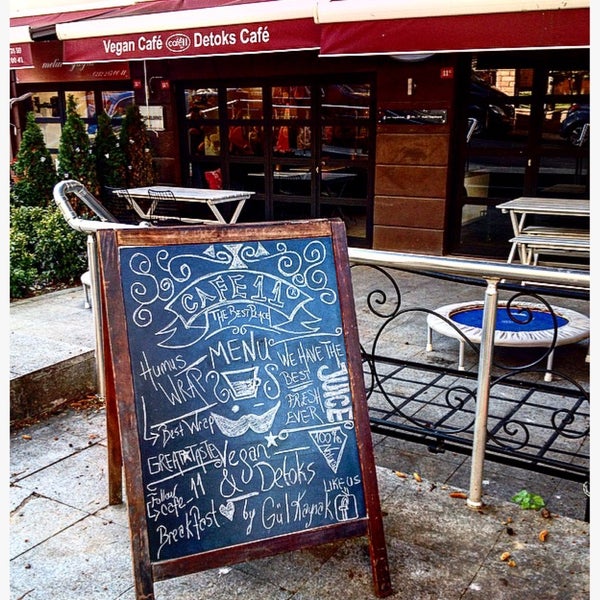 Vegan Café café11 Detoks Café
CAFE 11
THE BEST PLACE
MENU
HUMUS
WRAP
BEST WRAP
GREAT TASTE
WE HAVE THE
BEST
FRESH
EVER
JUICE
100%
Vegan
& Detoks
Follow
Cafe 11
LIKE US
BreakFast by Gül Kaynak